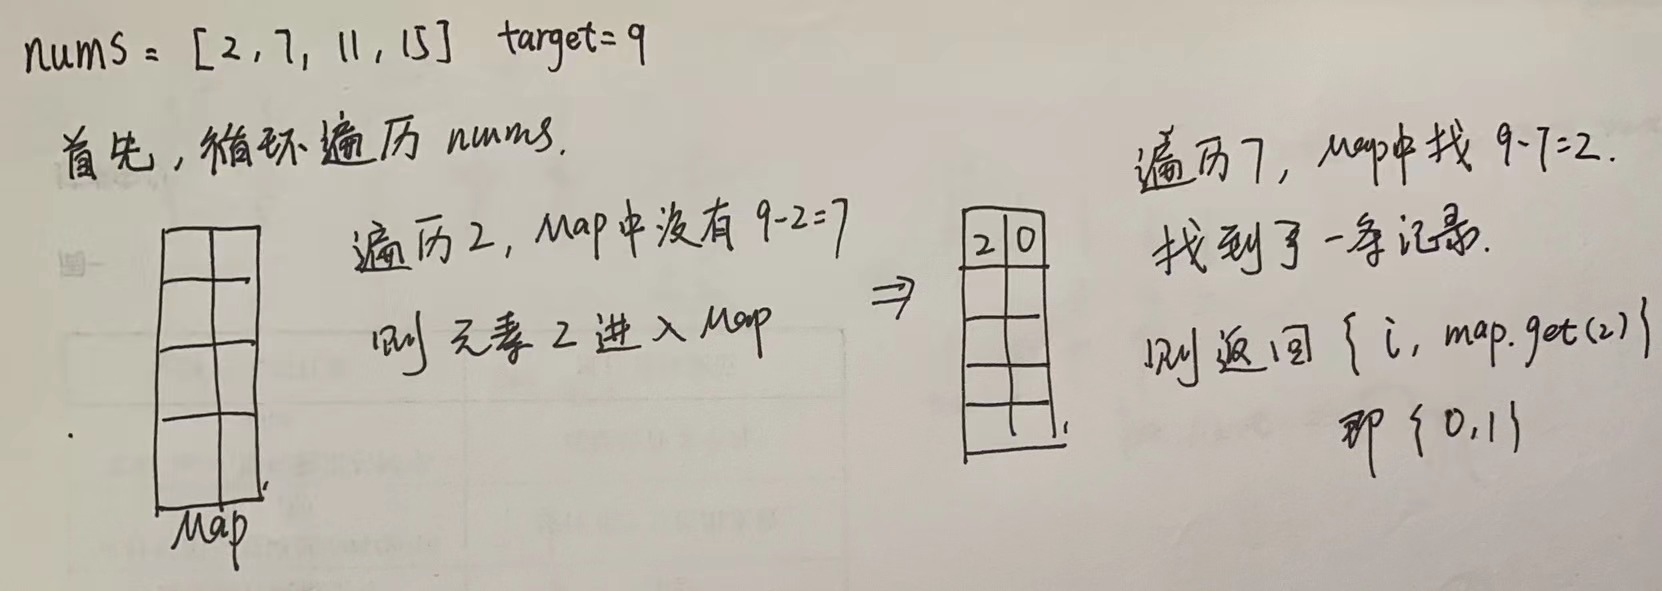 nums = [2, 7, 11, 15] target=9
首先，循环遍历 nums.
遍历2, Map中没有 9-2=7
则 元素 2 进入 Map
Map
⇒
2 0
遍历7, Map中找 9-7=2.
找到了一条记录.
则返回 { i, map.get(2)}
即 {0,1}